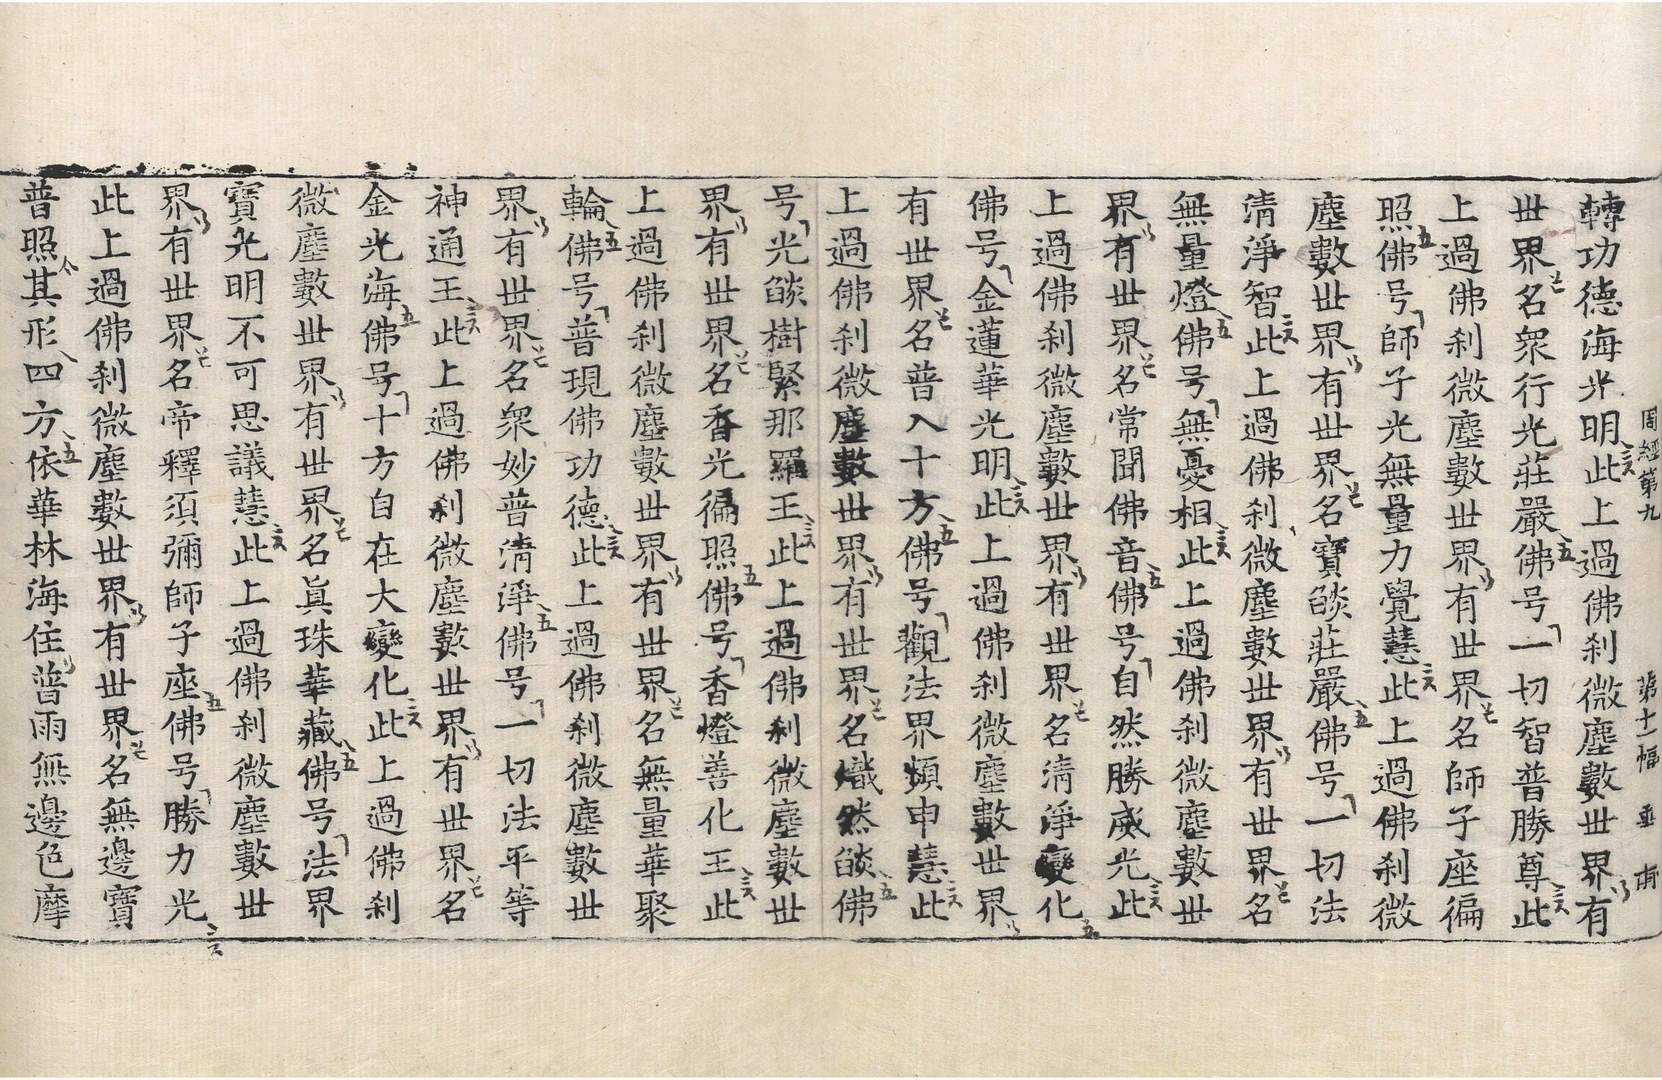 周經第九 第十一幅 垂
轉功德海光明此上過佛刹微塵數世界有
世界名衆行光莊嚴佛号一切智普勝尊此
上過佛刹微塵數世界有世界名師子座徧
照佛号師子光無量力覺慧此上過佛刹微
塵數世界有世界名寶燄莊嚴佛号一切法
清淨智此上過佛刹微塵數世界有世界名
無量燈佛号無憂相此上過佛刹微塵數世
界有世界名常聞佛音佛号自然勝威光此
上過佛刹微塵數世界有世界名清淨變化
佛号金蓮華光明此上過佛刹微塵數世界
有世界名普入十方佛号觀法界頻申慧此
上過佛刹微塵數世界有世界名熾然燄佛
号光燄樹緊那羅王此上過佛刹微塵數世
界有世界名香光徧照佛号香燈善化王此
上過佛刹微塵數世界有世界名無量華聚
輪佛号普現佛功德此上過佛刹微塵數世
界有世界名衆妙普清淨佛号一切法平等
神通王此上過佛刹微塵數世界有世界名
金光海佛号十方自在大變化此上過佛刹
微塵數世界有世界名真珠華藏佛号法界
寶光明不可思議慧此上過佛刹微塵數世
界有世界名帝釋須彌師子座佛号勝力光
此上過佛刹微塵數世界有世界名無邊寶
普照其形四方依華林海住普雨無邊色摩